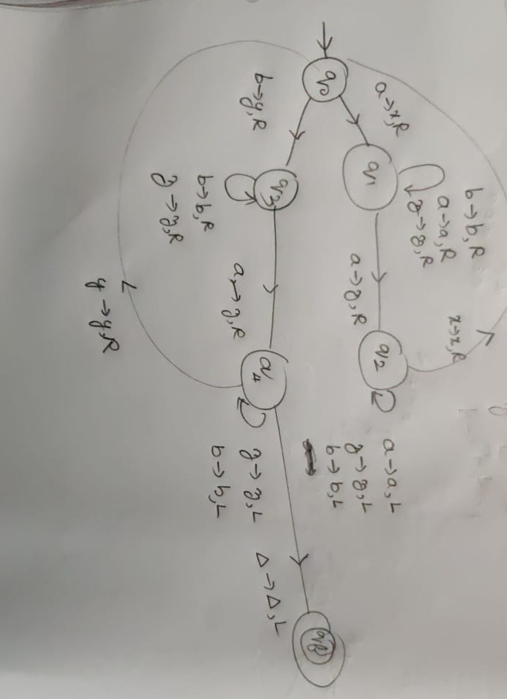 q0
a→x,R
q1
b→b,R
a→a,R
z→z,R
a→z,R
q2
x→x,R
a→a,L
z→z,L
b→b,L
b→y,R
q3
b→b,R
z→z,R
a→z,R
q4
z→z,L
b→b,L
y→y,R
Δ→Δ,L